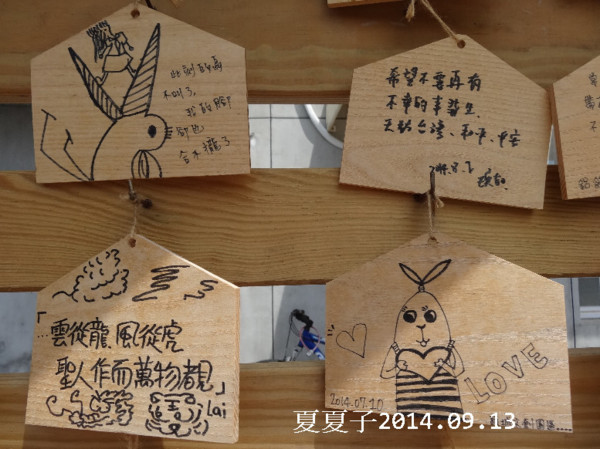 此別的馬
不叫了,
我的腳
卻也
希望不要再有
不幸的事發生.
天祐台灣、和平、平安
「…雲從龍,風從虎
聖人作而萬物覩」
lai
LOVE
2014.07.10
夏夏子2014.09.13